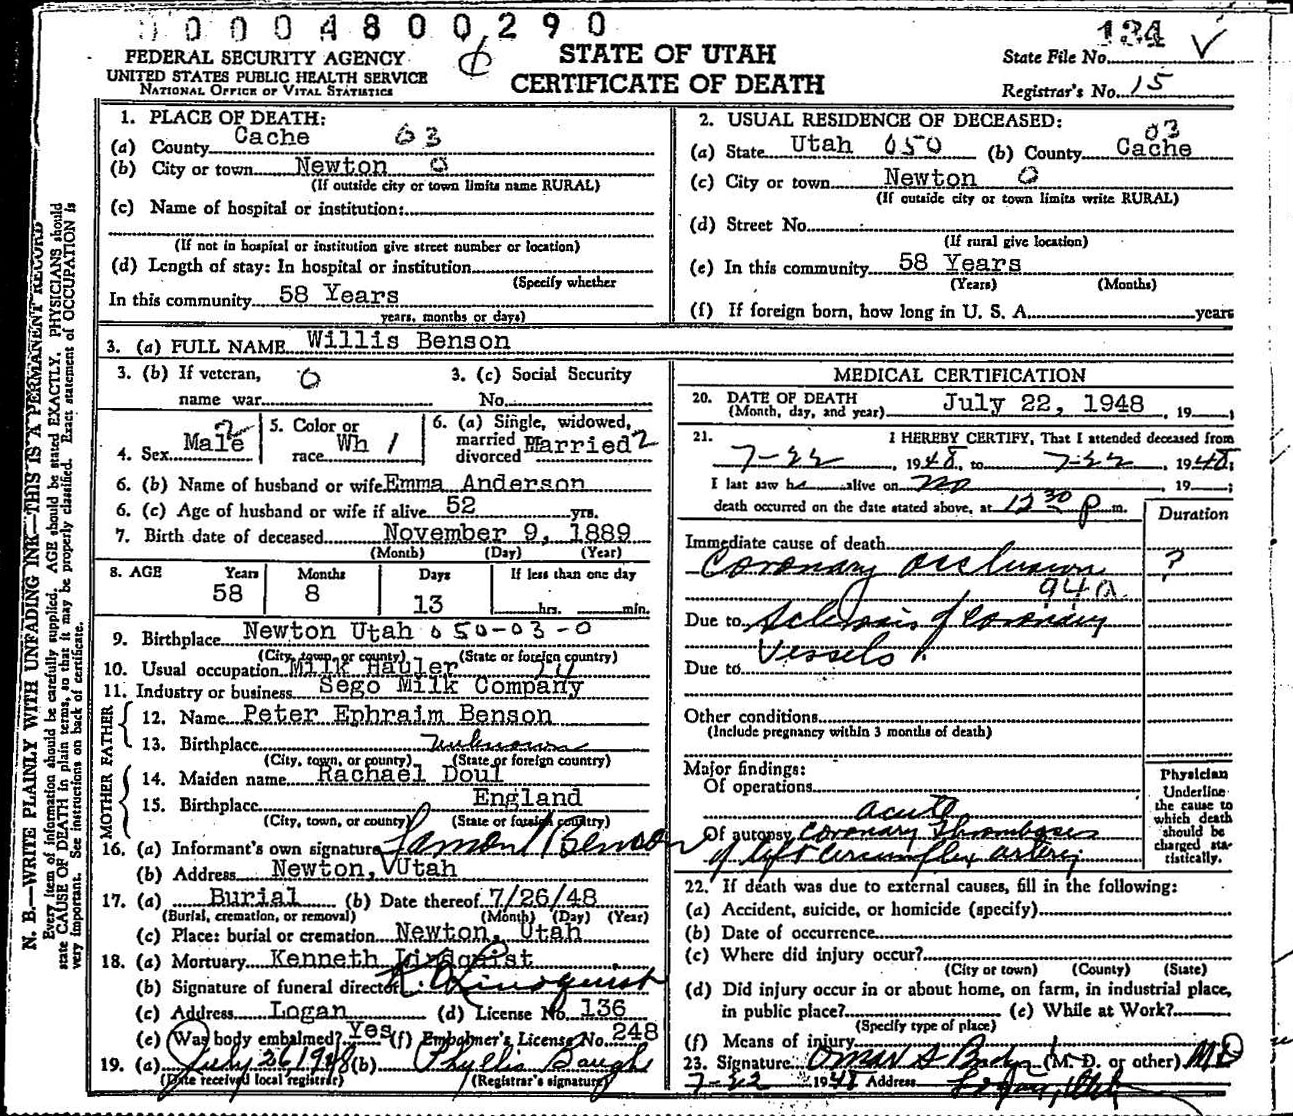 0004800290
134
FEDERAL SECURITY AGENCY
UNITED STATES PUBLIC HEALTH SERVICE
NATIONAL OFFICE OF VITAL STATISTICS
STATE OF UTAH
CERTIFICATE OF DEATH
State File No.
Registrar's No. 15
N. B.—WRITE PLAINLY WITH UNFADING INK—THIS IS A PERMANENT RECORD
Every item of information should be carefully supplied. AGE should be stated EXACTLY. PHYSICIANS should
state CAUSE OF DEATH in plain terms, so that it may be properly classified. Exact statement of OCCUPATION is
very important. See instructions on back of certificate.
1. PLACE OF DEATH:
(a) County Cache 03
(b) City or town Newton 0
(If outside city or town limits name RURAL)
(c) Name of hospital or institution:
(If not in hospital or institution give street number or location)
(d) Length of stay: In hospital or institution
(Specify whether
In this community 58 Years
years, months or days)
2. USUAL RESIDENCE OF DECEASED:
(a) State Utah 050 (b) County Cache 03
(c) City or town Newton 0
(If outside city or town limits write RURAL)
(d) Street No.
(If rural give location)
(e) In this community 58 Years
(Years) (Months)
(f) If foreign born, how long in U. S. A. years
3. (a) FULL NAME Willis Benson
3. (b) If veteran, 0 3. (c) Social Security
name war No.
4. Sex Male 2 5. Color or race Wh 1 6. (a) Single, widowed, married divorced Married 2
6. (b) Name of husband or wife Emma Anderson
6. (c) Age of husband or wife if alive 52 yrs.
7. Birth date of deceased November 9, 1889
(Month) (Day) (Year)
8. AGE Years Months Days If less than one day
58 8 13 hrs. min.
9. Birthplace Newton Utah 050-03-0
(City, town, or county) (State or foreign country)
10. Usual occupation Milk Hauler
11. Industry or business Sego Milk Company
FATHER
12. Name Peter Ephraim Benson
13. Birthplace unknown
(City, town, or county) (State or foreign country)
MOTHER
14. Maiden name Rachael Doul
15. Birthplace England
(City, town, or county) (State or foreign country)
16. (a) Informant's own signature Lamont Benson
(b) Address Newton, Utah
17. (a) Burial (b) Date thereof 7/26/48
(Burial, cremation, or removal) (Month) (Day) (Year)
(c) Place: burial or cremation Newton, Utah
18. (a) Mortuary Kenneth Lindquist
(b) Signature of funeral director K. Lindquist
(c) Address Logan (d) License No. 136
(e) Was body embalmed? Yes (f) Embalmer's License No. 248
19. (a) July 26 1948 (b) Phyllis Baugh
(Date received local registrar) (Registrar's signature)
MEDICAL CERTIFICATION
20. DATE OF DEATH
(Month, day, and year) July 22, 1948, 19 ;
21. I HEREBY CERTIFY, That I attended deceased from
7-22, 1948, to 7-22, 1948;
I last saw h alive on no, 19 ;
death occurred on the date stated above, at 12 30 p m.
Duration
Immediate cause of death
Coronary occlusion ?
94a
Due to Sclerosis of Coronary
Vessels.
Due to
Other conditions
(Include pregnancy within 3 months of death)
Major findings:
Of operations
Of autopsy acute coronary thrombosis
of left circumflex artery
Physician
Underline
the cause to
which death
should be
charged sta-
tistically.
22. If death was due to external causes, fill in the following:
(a) Accident, suicide, or homicide (specify)
(b) Date of occurrence
(c) Where did injury occur?
(City or town) (County) (State)
(d) Did injury occur in or about home, on farm, in industrial place,
in public place? (e) While at Work?
(Specify type of place)
(f) Means of injury
23. Signature Omar S Budge (M. D. or other) MD
7-22 1948 Address Logan, Utah